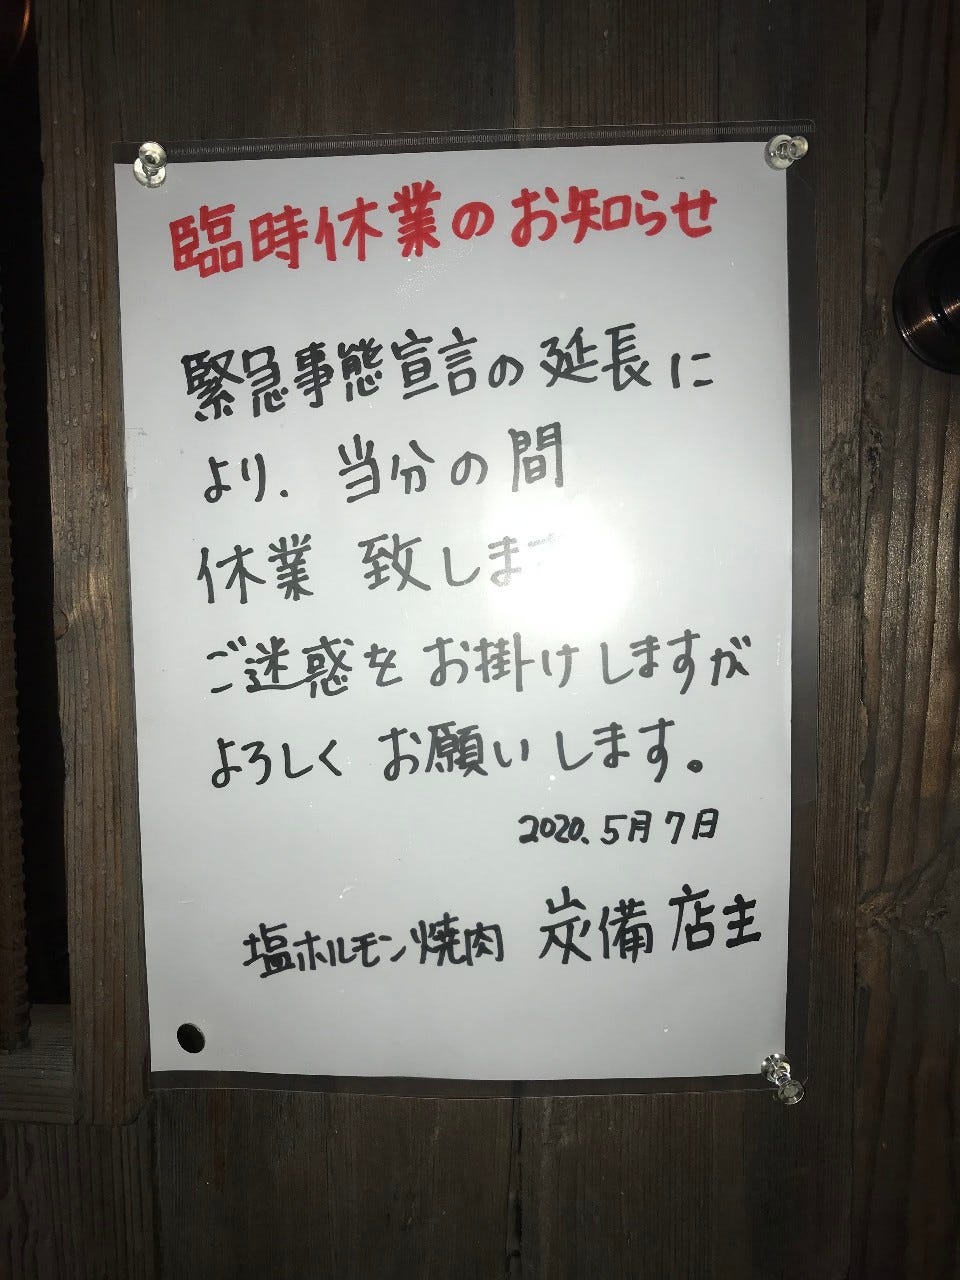 臨時休業のお知らせ
緊急事態宣言の延長に
より、当分の間
休業 致しま
ご迷惑をお掛けしますが
よろしく お願いします。
2020、5月7日
塩ホルモン焼肉 炭備 店主